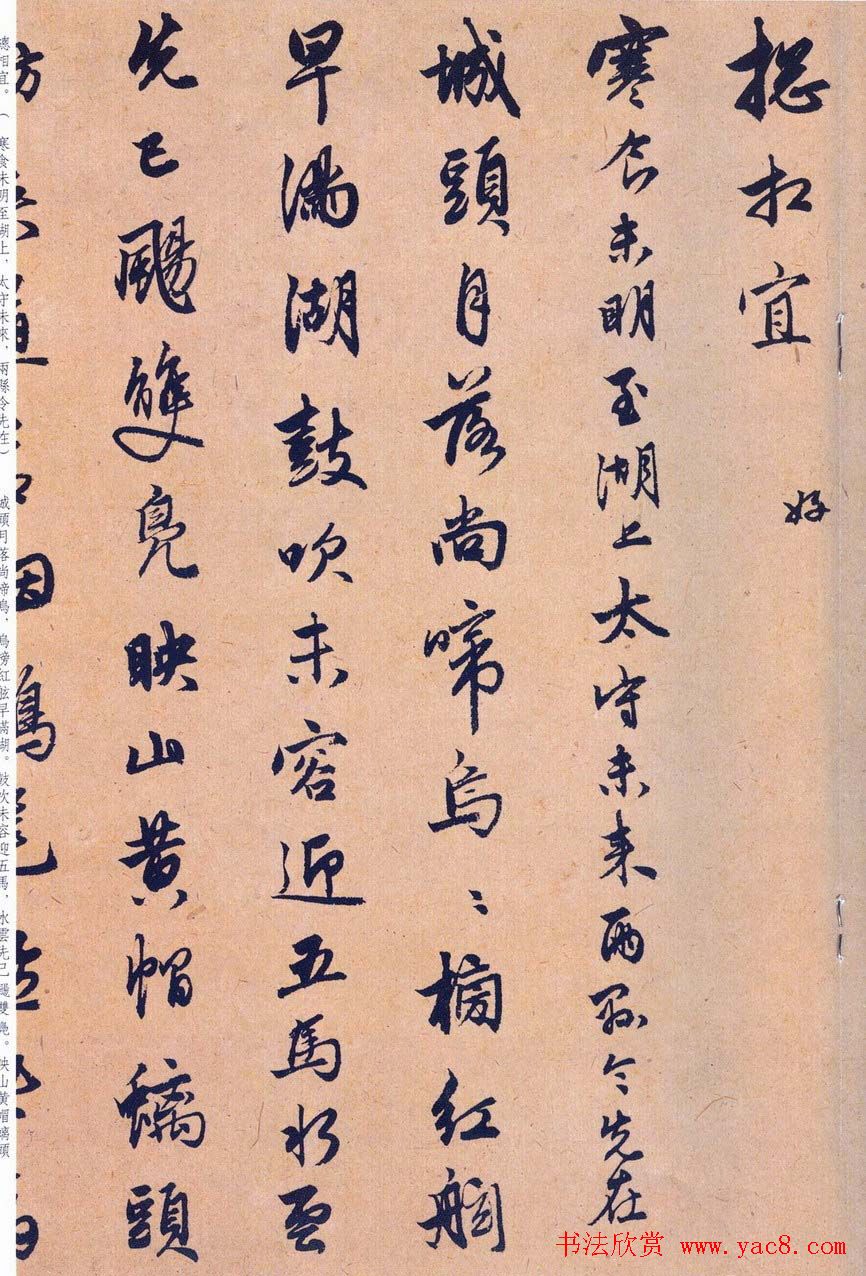 揔相宜
好
寒食未明至湖上太守未来兩縣令先在
城頭月落尚啼烏〻榜紅舷
早滿湖鼓吹未容迎五馬水雲
先已颺雙鳧映山黄帽螭頭
總相宜。（寒食未明至湖上，太守未來，兩縣令先在） 城頭月落尚啼烏，烏榜紅舷早滿湖。鼓吹未容迎五馬，水雲先已颺雙鳧。映山黃帽螭頭
书法欣赏 www.yac8.com